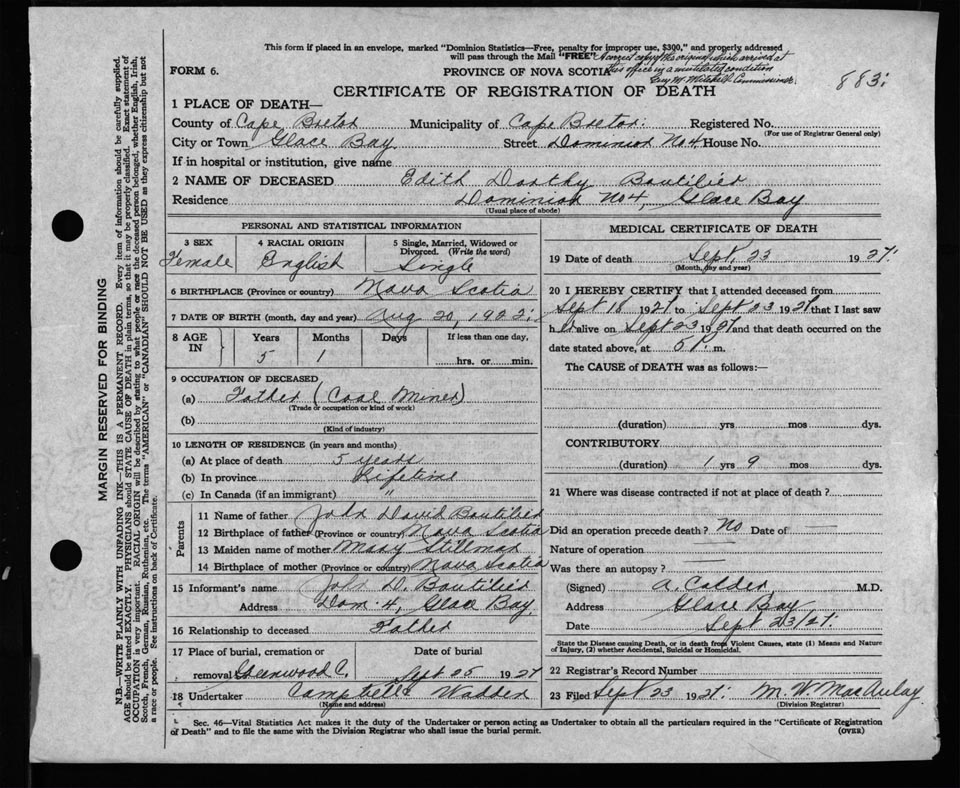 This form if placed in an envelope, marked "Dominion Statistics—Free, penalty for improper use, $300," and properly addressed
will pass through the Mail "FREE" A correct copy of the original which arrived at
this office in a mutilated condition
FORM 6. PROVINCE OF NOVA SCOTIA Commissioner.
883:
CERTIFICATE OF REGISTRATION OF DEATH
1 PLACE OF DEATH—
County of Cape Breton Municipality of Cape Breton: Registered No.
(For use of Registrar General only)
City or Town Glace Bay Street Dominion No 4 House No.
If in hospital or institution, give name
2 NAME OF DECEASED Edith Dorthy Boutilier
Residence Dominion No 4, Glace Bay
(Usual place of abode)
PERSONAL AND STATISTICAL INFORMATION
3 SEX 4 RACIAL ORIGIN 5 Single, Married, Widowed or
Divorced. (Write the word)
Female English Single
6 BIRTHPLACE (Province or country) Nova Scotia
7 DATE OF BIRTH (month, day and year) Aug 20, 1922:
8 AGE IN Years Months Days If less than one day,
5 1 hrs. or min.
9 OCCUPATION OF DECEASED
(a) Father (Coal Miner)
(Trade or occupation or kind of work)
(b)
(Kind of industry)
10 LENGTH OF RESIDENCE (in years and months)
(a) At place of death 5 years
(b) In province Lifetime
(c) In Canada (if an immigrant) "
Parents
11 Name of father John David Boutilier
12 Birthplace of father (Province or country) Nova Scotia
13 Maiden name of mother Mary Stillman
14 Birthplace of mother (Province or country) Nova Scotia
15 Informant's name John D. Boutilier
Address Dom. 4, Glace Bay
16 Relationship to deceased Father
17 Place of burial, cremation or Date of burial
removal Greenwood C. Sept 25 1927
18 Undertaker Campbell Wadden
(Name and address)
MEDICAL CERTIFICATE OF DEATH
19 Date of death Sept, 23 1927.
(Month, day and year)
20 I HEREBY CERTIFY that I attended deceased from
Sept 18 1927 to Sept 23 1927 that I last saw
her alive on Sept 23 1927 and that death occurred on the
date stated above, at 5 P. m.
The CAUSE of DEATH was as follows:—
(duration) yrs mos dys.
CONTRIBUTORY
(duration) 1 yrs 9 mos dys.
21 Where was disease contracted if not at place of death?
Did an operation precede death? No Date of —
Nature of operation —
Was there an autopsy? —
(Signed) A. Calder M.D.
Address Glace Bay
Date Sept 23/27.
State the Disease causing Death, or in death from Violent Causes, state (1) Means and Nature
of Injury, (2) whether Accidental, Suicidal or Homicidal.
22 Registrar's Record Number
23 Filed Sept 23 1927. M. W. MacAulay
(Division Registrar)
Sec. 46—Vital Statistics Act makes it the duty of the Undertaker or person acting as Undertaker to obtain all the particulars required in the "Certificate of Registration
of Death" and to file the same with the Division Registrar who shall issue the burial permit. (OVER)
MARGIN RESERVED FOR BINDING
N.B.—WRITE PLAINLY WITH UNFADING INK—THIS IS A PERMANENT RECORD. Every item of information should be carefully supplied.
AGE should be stated EXACTLY. PHYSICIANS should STATE CAUSE OF DEATH in plain terms, so that it may be properly classified. Exact statement of
OCCUPATION is very important. RACIAL ORIGIN will be described by stating to what people or race the deceased person belonged, whether English, Irish,
Scotch, French, German, Russian, Ruthenian, etc. The terms "AMERICAN" or "CANADIAN" SHOULD NOT BE USED as they express citizenship but not
a race or people. See instructions on back of Certificate.